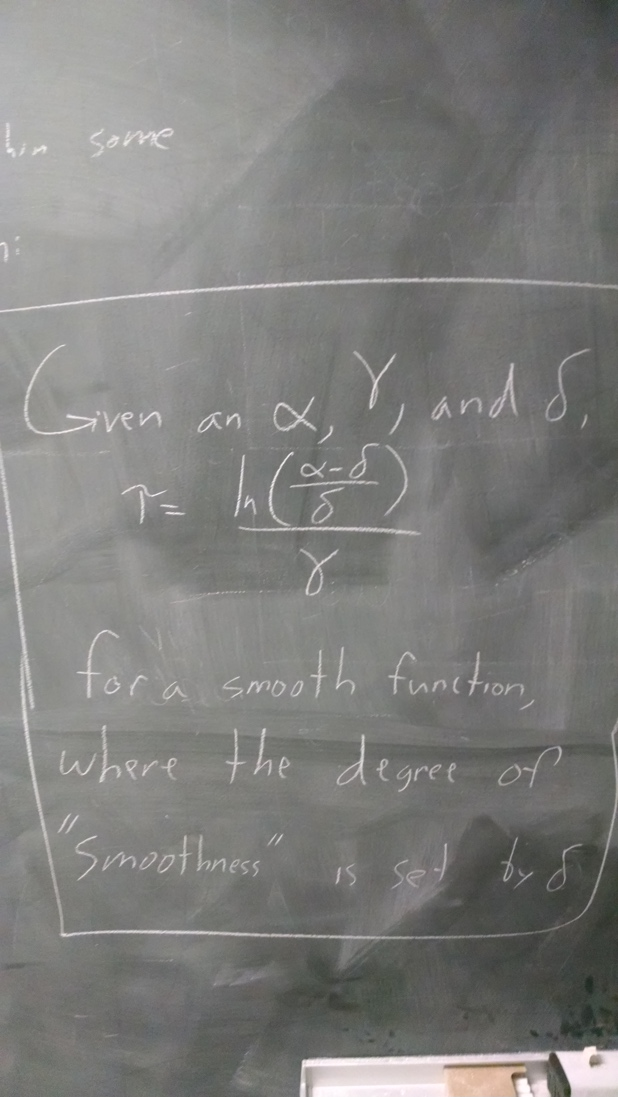 some
Given an α, γ, and δ,
τ = ln((α-δ)/δ)/γ
for a smooth function,
where the degree of
"Smoothness" is set by δ